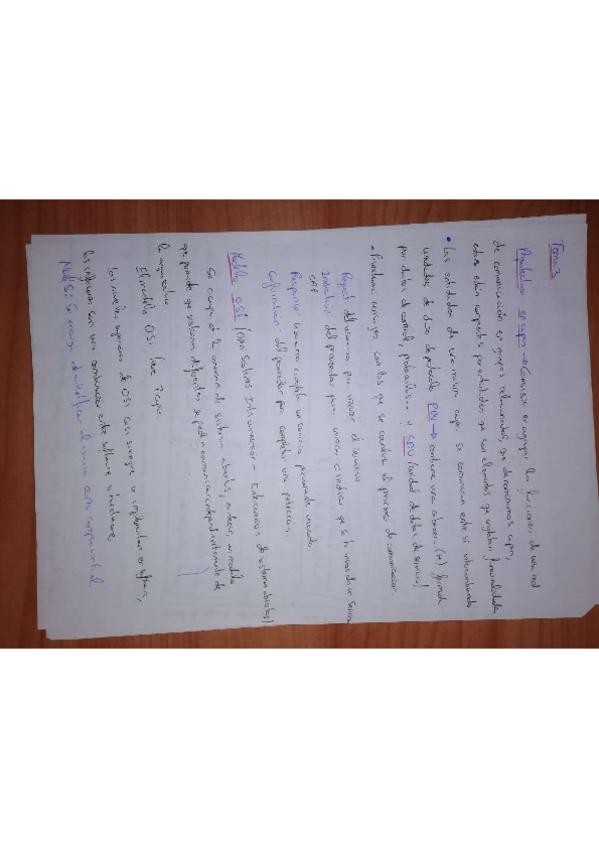 Tema 3
Arquitectura en capas → Consiste en agrupar las funciones de una red
de comunicación en grupos relacionados, que denominamos capas,
estas están compuestas por entidades que son elementos que implementan funcionalidades
• Las entidades de una misma capa se comunican entre sí intercambiando
unidades de datos de protocolo PDU → contiene una cabecera (H) formada
por datos de control, y SDU (unidad de datos de servicio)
• Primitivas: mensajes con los que se coordina el proceso de comunicación
Request: del usuario para invocar el servicio
Indication: del proveedor para invocar o indicar que se ha invocado un servicio
Response: usuario completa un servicio previamente invocado
Confirmation: del proveedor para completar una petición
Modelo OSI (Open Systems Interconnection – Interconexión de sistemas abiertos)
Se ocupa de la conexión de sistemas abiertos, es decir, un modelo
que permite que sistemas diferentes se puedan comunicar independientemente de
la arquitectura
El modelo OSI tiene 7 capas
Los niveles superiores de OSI casi siempre se implementan en software,
los inferiores son una combinación entre software y hardware,